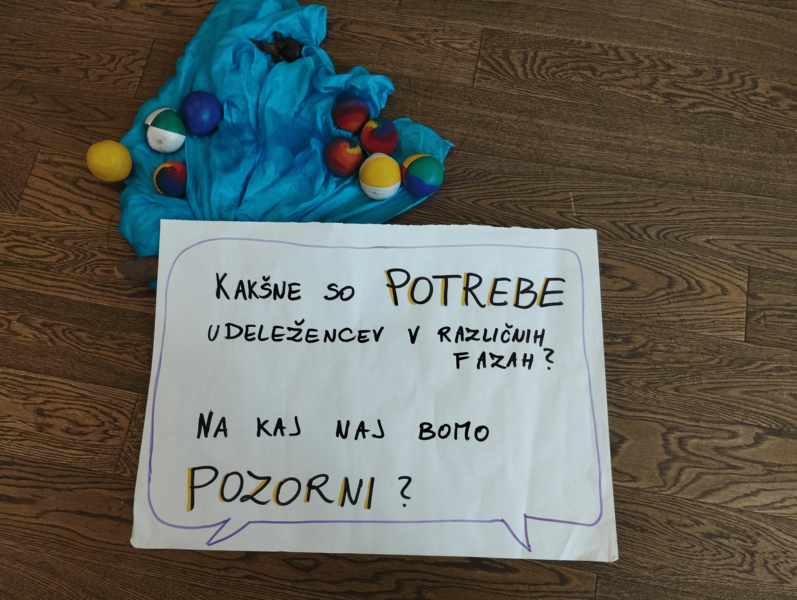 KAKŠNE SO POTREBE
UDELEŽENCEV V RAZLIČNIH
FAZAH?
NA KAJ NAJ BOMO
POZORNI?